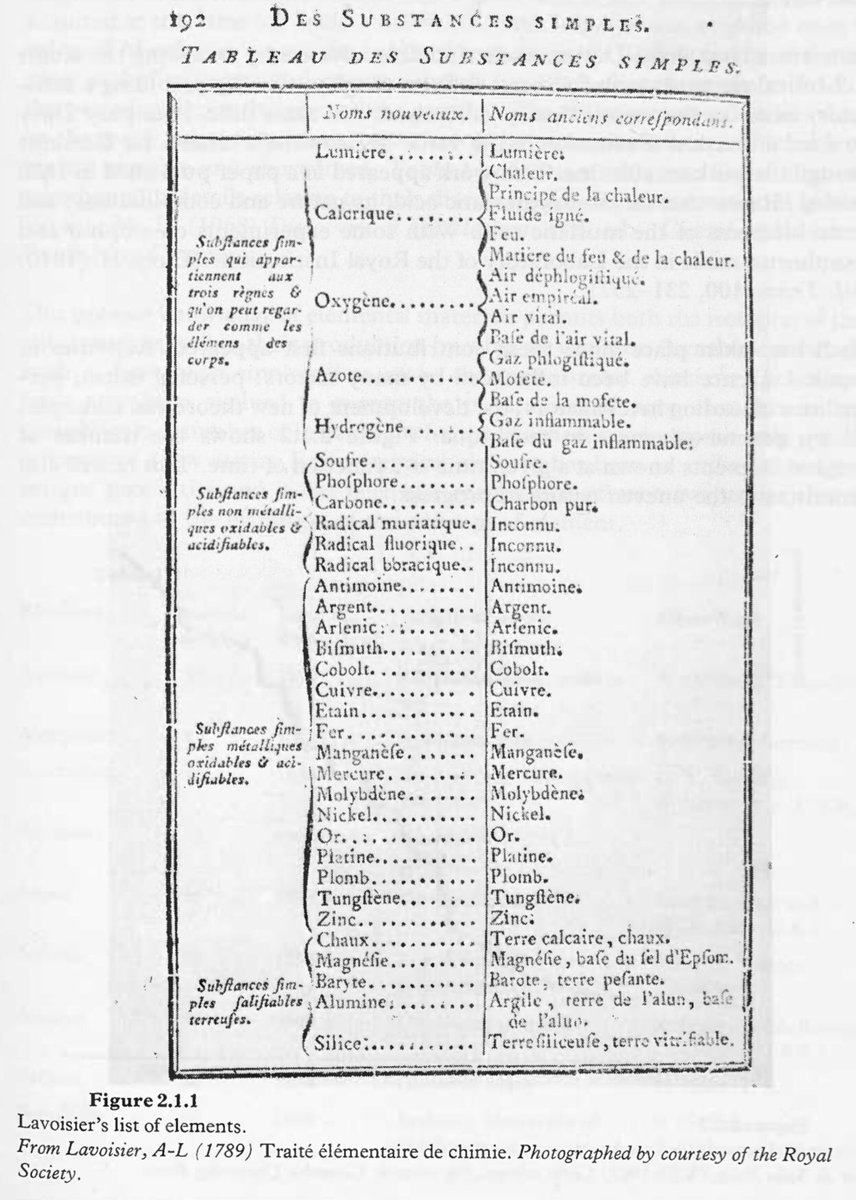 192 DES SUBSTANCES SIMPLES.
TABLEAU DES SUBSTANCES SIMPLES.
Noms nouveaux. Noms anciens correſpondans.
Subſtances ſim-
ples qui appar-
tiennent aux
trois règnes &
qu'on peut regar
der comme les
élémens des
corps.
Lumière........ Lumière.
Calorique........ Chaleur.
Principe de la chaleur.
Fluide igné.
Feu.
Matière du feu & de la chaleur.
Oxygène........ Air déphlogiſtiqué.
Air empiréal.
Air vital.
Baſe de l'air vital.
Azote........ Gaz phlogiſtiqué.
Mofete.
Baſe de la mofete.
Hydrogène........ Gaz inflammable.
Baſe du gaz inflammable.
Subſtances ſim-
ples non métalli-
ques oxidables &
acidifiables.
Soufre........ Soufre.
Phoſphore........ Phoſphore.
Carbone........ Charbon pur.
Radical muriatique. Inconnu.
Radical fluorique.. Inconnu.
Radical boracique.. Inconnu.
Subſtances ſim-
ples métalliques
oxidables & aci-
difiables.
Antimoine........ Antimoine.
Argent.......... Argent.
Arſenic.......... Arſenic.
Biſmuth......... Biſmuth.
Cobolt.......... Cobolt.
Cuivre.......... Cuivre.
Etain........... Etain.
Fer............ Fer.
Manganèſe....... Manganèſe.
Mercure......... Mercure.
Molybdène....... Molybdène.
Nickel.......... Nickel.
Or............. Or.
Platine.......... Platine.
Plomb.......... Plomb.
Tungſtène........ Tungſtène.
Zinc............ Zinc.
Subſtances ſim-
ples ſalifiables
terreuſes.
Chaux.......... Terre calcaire, chaux.
Magnéſie........ Magnéſie, baſe du ſel d'Epſom.
Baryte.......... Barote, terre peſante.
Alumine......... Argile, terre de l'alun, baſe
de l'alun.
Silice........... Terre ſiliceuſe, terre vitrifiable.
Figure 2.1.1
Lavoisier's list of elements.
From Lavoisier, A-L (1789) Traité élémentaire de chimie. Photographed by courtesy of the Royal
Society.